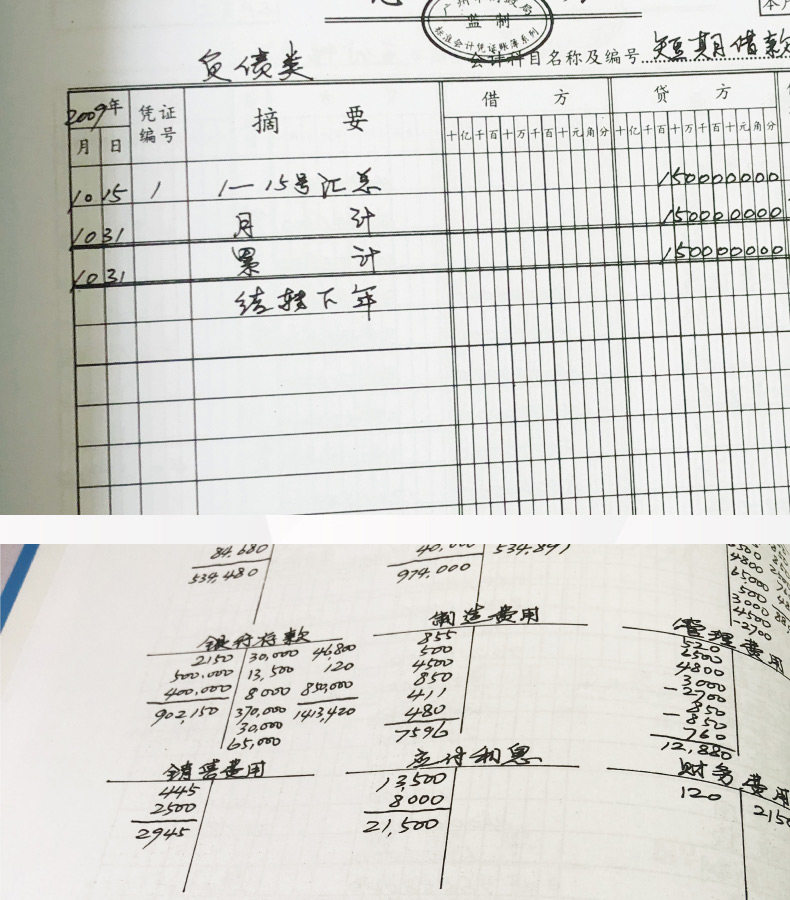 监制
标准会计凭证账簿系列
会计科目名称及编号 短期借款
负债类
2009年 凭证编号 摘要 借方 贷方
月 日
十亿千百十万千百十元角分 十亿千百十万千百十元角分
10 15 1 1—15号汇总 150000000
10 31 月计 150000000
10 31 累计 150000000
结转下年
84,680
534,480
974,000
534,891
4800
65,000
500
3000
4500
-2700
银行存款
2150 30,000 46,800
500,000 13,500 120
400,000 8000 850,000
902,150 370,000 1413,420
30,000
65,000
制造费用
855
500
4500
850
411
480
7596
管理费用
520
2500
4800
3000
-2700
-850
760
12,880
销售费用
445
2500
2945
应付利息
13,500
8000
21,500
财务费用
120 2150